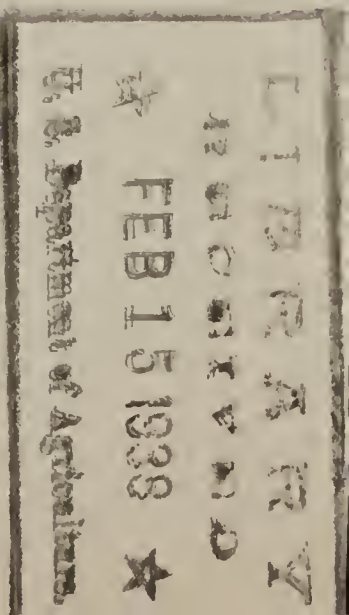 LIBRARY
RECEIVED
★ FEB 15 1938 ★
U. S. Department of Agriculture.